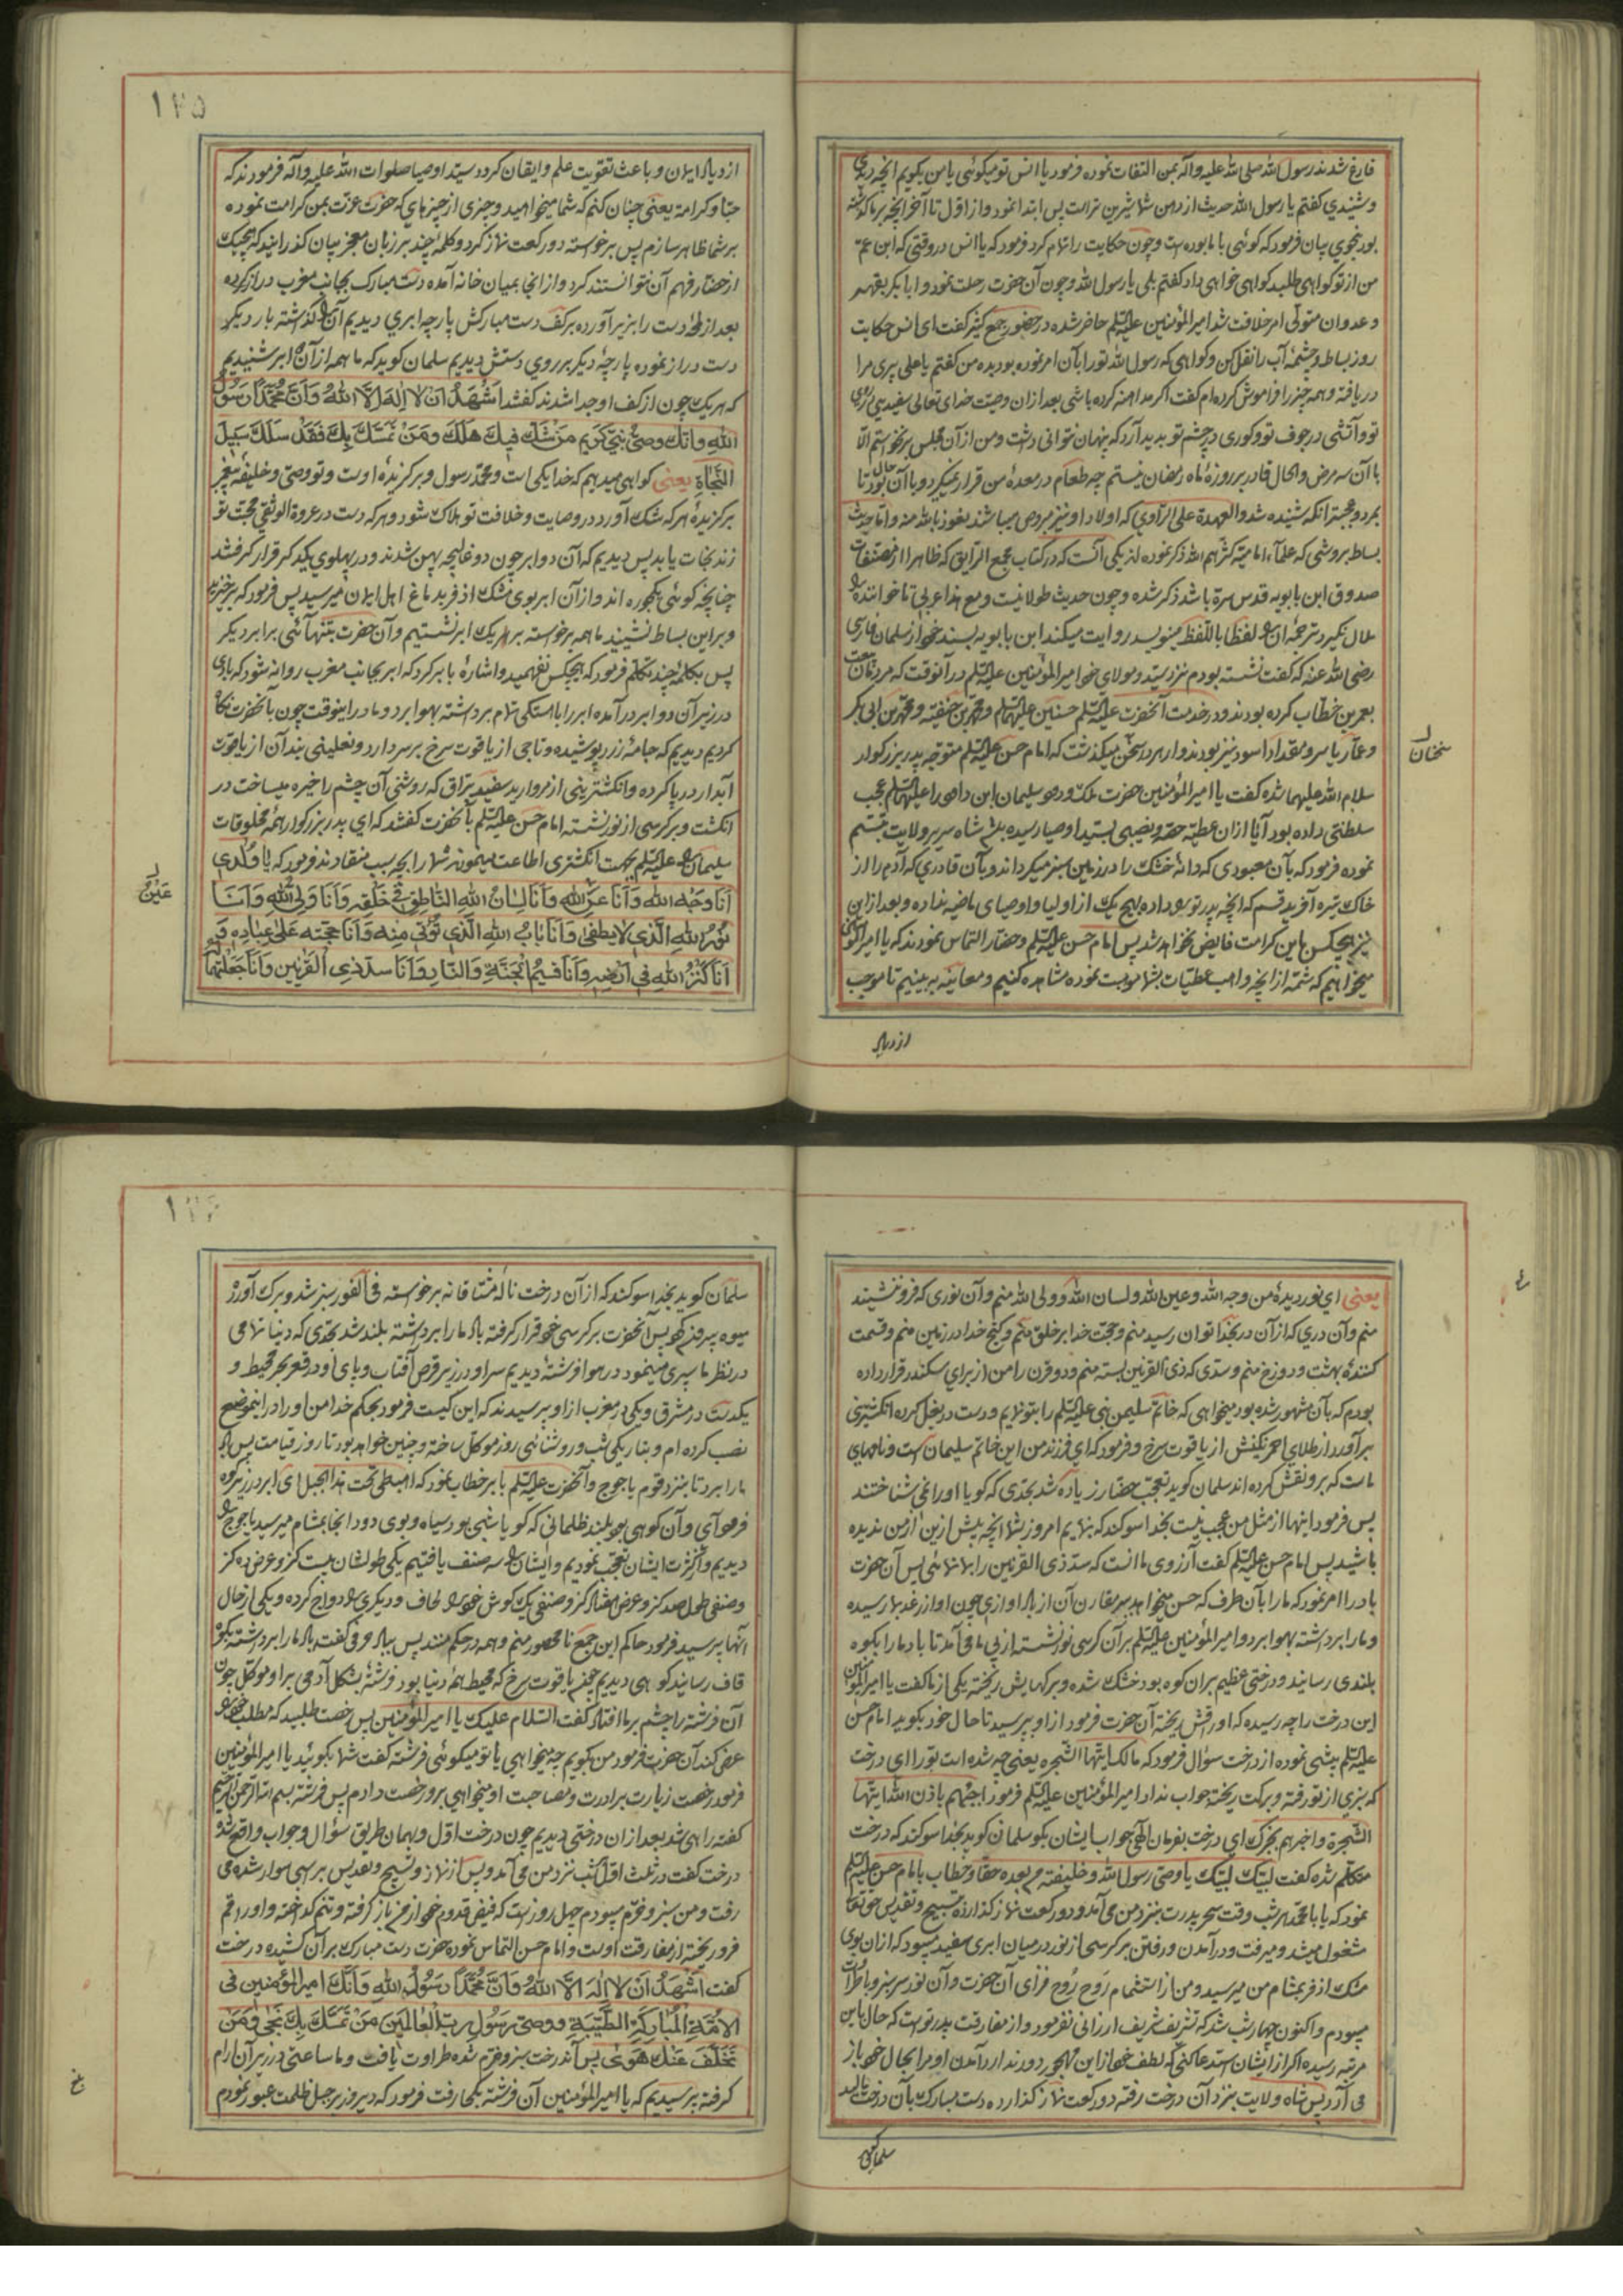 فارغ شدند رسول الله صلی الله علیه وآله بمن التفات نموده فرمود یا انس تو میکوئی یا من بکویم آنچه دیدی
وشنیدی کفتم یا رسول الله حدیث از دهن شما شیرین تر است پس ابتدا نمود و از اول تا آخر آنچه بر ما کذشته
بود بنحوی بیان فرمود که کوئی با ما بوده است وچون حکایت را تمام کرد فرمود که یا انس در وقتی که ابن عم
من از تو کواهی طلبد کواهی خواهی داد کفتم بلی یا رسول الله وچون آن حضرت رحلت نمود و ابا بکر بقهر
وعدوان متولی امر خلافت شد امیر المؤمنین علیه السلم حاضر شده در حضور جمع کثیر کفت ای انس حکایت
روز بساط و چشمهٔ آب را نقل کن و کواهی که رسول الله تو را بآن امر نموده بود بده من کفتم یا علی پیری مرا
دریافته و همه چیز را فراموش کرده ام کفت اکر مداهنه کرده باشی بعد از ان وصیت خدای تعالی سفیدیی بر روی
تو و آتشی در جوف تو و کوری در چشم تو پدید آرد که پنهان نتوانی داشت و من از آن مجلس برنخواستم الا
با آن سه مرض و الحال قادر بر روزهٔ ماه رمضان نیستم چه طعام در معدهٔ من قرار نمیکیرد و با آن حال بود تا
بمرد و عجبتر آنکه شنیده شد والعهدة علی الراوی که اولاد او نیز مبروص میباشند نعوذ بالله منه و اما حدیث
بساط بروشی که علمآء امامیه کثرهم الله ذکر نموده اند یکی آنست که در کتاب مجمع الرایق که ظاهرا از مصنفات
صدوق ابن بابویه قدس سره باشد ذکر شده وچون حدیث طولانیست و مع هذا عربی تا خواننده را
ملال نکیرد ترجمهٔ آن را لفظا باللفظ مینویسد روایت میکند ابن بابویه بسند خود از سلمان فارسی
رضی الله عنه که کفت نشسته بودم نزد سید و مولای خود امیر المؤمنین علیه السلم در آنوقت که مردمان بیعت
بعمر بن خطاب کرده بودند و در خدمت آنحضرت علیه السلم حسنین علیهما السلم و محمد بن حنفیه و محمد بن ابی بکر
و عمار یاسر و مقداد اسود نیز بودند و از هر در سخن میکذشت که امام حسن علیه السلم متوجه پدر بزرکوار
سلام الله علیهما شده کفت یا امیر المؤمنین حضرت ملک ودود سلیمان ابن داود را علیهما السلم عجب
سلطنتی داده بود آیا از ان عطیه حصه و نصیبی بسید اوصیا رسیده باشد شاه سریر ولایت تبسم
نموده فرمود که بآن معبودی که دانهٔ خشک را در زمین سبز میکرداند و بآن قادری که آدم را از
خاک تیره آفرید قسم که آنچه پدر تو را داده بهیچ یک از اولیا و اوصیای ماضیه نداده و بعد از این
نیز هیچکس باین کرامت فایض نخواهد شد پس امام حسن علیه السلم وحضار التماس نمودند که یا امیر المؤمنین
میخواهیم که شمهٔ از آنچه واهب عطیات بشما موهبت نموده مشاهده کنیم و معاینه به بینیم تا موجب
سخنان
ازدیاد
۱۲۵
ازدیاد ایمان و باعث تقویت علم و ایقان کردد سید اوصیا صلوات الله علیه وآله فرمودند که
حبا و کرامة یعنی چنان کنم که شما میخواهید و چیزی از چیزهای که حضرت عزت بمن کرامت نموده
بر شما ظاهر سازم پس برخواسته دو رکعت نماز کرد و کلمهٔ چند بر زبان معجز بیان کذرانید که هیچیک
از حضار فهم آن نتوانستند کرد و از انجا بمیان خانه آمده دست مبارک بجانب مغرب دراز کرده
بعد از لحظهٔ دست را بزیر آورده بر کف دست مبارکش پارچه ابری دیدیم آن را کذاشته بار دیکر
دست دراز نموده پارچهٔ دیکر بر روی دستش دیدیم سلمان کوید که ما همه از آن ابر شنیدیم
که هر یک چون از کف او جدا شدند کفتند اشهد ان لا اله الا الله وان محمدا رسول
الله وانک وصی نبی کریم من شک فیک هلک ومن تمسک بک فقد سلک سبیل
النجاة یعنی کواهی میدهیم که خدا یکی است و محمد رسول و برکزیدهٔ اوست و تو وصی و خلیفهٔ پیغمبر
برکزیدهٔ هر که شک آورد در وصایت و خلافت تو هلاک شود و هر که دست در عروة الوثقی محبت تو
زند نجات یابد پس دیدیم که آن دو ابر چون دو غالیچه پهن شدند و در پهلوی یکدیکر قرار کرفتند
چنانچه کوئی یکپاره اند و از آن ابر بوی مشک اذفر بدماغ اهل ایمان میرسید پس فرمود که برخیزید
و بر این بساط نشینید ما همه برخواسته بر یک ابر نشستیم و آن حضرت بتنهائی بر ابر دیکر
پس بکلمهٔ چند متکلم فرمود که هیچکس نفهمید و اشاره بابر کرد که ابر بجانب مغرب روانه شود که بادی
در زیر آن دو ابر درآمده ابر را باهستکی تمام برداشته بهوا برد و ما در اینوقت چون بآنحضرت نکاه
کردیم دیدیم که جامهٔ زرد پوشیده و تاجی از یاقوت سرخ بر سر دارد و نعلینی بند آن از یاقوت
آبدار در پا کرده و انکشترینی از مروارید سفید براق که روشنی آن چشم را خیره میساخت در
انکشت و بر کرسی از نور نشسته امام حسن علیه السلم بآنحضرت کفتند که ای پدر بزرکوار همهٔ مخلوقات
سلیمان را علیه السلم بجهت انکشتری اطاعت مینمودند شما را بچه سبب منقادند فرمود که یا ولدی
انا وجه الله وانا عین الله وانا لسان الله الناطق فی خلقه وانا ولی الله وانا
نور الله الذی لا یطفی وانا باب الله الذی یوتی منه وانا حجته علی عباده
انا کنز الله فی ارضه وانا قسیم الجنة والنار وانا سد ذی القرنین وانا جعلتها
عین
یعنی ای نور دیدهٔ من وجه الله و عین الله و لسان الله و ولی الله منم و آن نوری که فرو ننشیند
منم و آن دری که از آن در بخدا توان رسید منم و حجت خدا بر خلق منم و کنج خدا در زمین منم و قسمت
کنندهٔ بهشت و دوزخ منم و سدی که ذی القرنین بسته منم و دو قرن را من از برای سکندر قرار داده
بودم که بآن مشهور شده بود میخواهی که خاتم سلیمن نبی علیه السلم را بتو نمایم و دست در بغل کرده انکشتری
برآورد از طلای احمر نکینش از یاقوت سرخ و فرمود که ای فرزند من این خاتم سلیمان است و نامهای
ماست که بر او نقش کرده اند سلمان کوید تعجب حضار زیاده شد بحدی که کویا او را نمی شناختند
پس فرمود اینها از مثل من عجب نیست بخدا سوکند که بنمایم امروز بشما آنچه پیش از ین از من ندیده
باشید پس امام حسن علیه السلم کفت آرزوی ما آنست که سد ذی القرنین را بما نمائی پس آن حضرت
باد را امر نمود که ما را بآن طرف که حسن میخواهد ببر مقارن آن از باد آوازی چون آواز رعد بما رسیده
و ما را برداشته بهوا برد و امیر المؤمنین علیه السلم بر آن کرسی نور نشسته از پی ما می آمد تا باد ما را بکوه
بلندی رسانید و درختی عظیم بران کوه بود خشک شده و برکهایش ریخته یکی از ما کفت یا امیر المؤمنین
این درخت را چه رسیده که اوراقش ریخته آن حضرت فرمود از او بپرسید تا حال خود بکوید امام حسن
علیه السلم پیشی نموده از درخت سؤال فرمود که مالک ایتها الشجره یعنی چه شده است تو را ای درخت
که سبزی از تو رفته و برکت ریخته جواب نداد امیر المؤمنین علیه السلم فرمود اجبهم باذن الله ایتها
الشجرة واخبرهم بخبرک ای درخت بفرمان الهی جواب ایشان بکو سلمان کوید بخدا سوکند که درخت
متکلم شده کفت لبیک لبیک یا وصی رسول الله و خلیفته من بعده حقا و خطاب بامام حسن علیه السلم
نمود که یا با محمد هر شب وقت سحر پدرت بنزد من می آمد و دو رکعت نماز کذارده تسبیح و تقدیس حق تعالی
مشغول میشد و میرفت و در آمدن و رفتن بر کرسی از نور در میان ابری سفید میبود که از ان بوی
مشک اذفر بمشام من میرسید و من از استشمام روح روح فزای آن حضرت و آن نور سرسبز و با طراوت
میبودم و اکنون چهل شب شد که تشریف شریف ارزانی نفرمود و از مفارقت پدر تو است که حال باین
مرتبه رسیده اکر از ایشان استدعا کنی که لطف خود از این مهجور دور ندارد آمدن او مرا بحال خود باز
می آرد پس شاه ولایت بنزد آن درخت رفته دو رکعت نماز کذارده دست مبارک بآن درخت مالید
سلمان کوید
۱۲۶
سلمان کوید بخدا سوکند که از آن درخت نالهٔ مشتاقانه برخواسته فی الفور سبز شد و برک آورد
میوه بیرون کرد پس آنحضرت بر کرسی خود قرار کرفته باد ما را برداشته بلند شد بحدی که دنیا تمامی
در نظر ما سپری مینمود در هوا فرشتهٔ دیدیم سر او در زیر قرص آفتاب و پای او در قعر بحر محیط و
یکدست در مشرق و یکی در مغرب از او پرسیدند که این کیست فرمود بحکم خدا من او را در اینموضع
نصب کرده ام و بتاریکی شب و روشنائی روز موکل ساخته و چنین خواهد بود تا روز قیامت پس باد
ما را برد تا بنزد قوم یاجوج و آنحضرت علیه السلم بابر خطاب نمود که اهبطی تحت هذا الجبل ای ابر در زیر کوه
فرود آی و آن کوهی بود بلند ظلمانی که کویا شبی بود سیاه و بوی دود انجا بمشام میرسید یاجوج را
دیدیم و از کثرت ایشان تعجب نمودیم و ایشان را سه صنف یافتیم یکی طولشان بیست کز و عرض ده کز
وصنفی طول صد کز و عرض هفتاد کز و صنفی یک کوش خود را لحاف و دیکری را دواج کرده و یکی از حال
آنها پرسید فرمود حاکم این جمع نامحصور منم و همه در حکم منند پس بباد حرفی کفت باد ما را برداشته بکوه
قاف رسانید کوهی دیدیم چون یاقوت سرخ که محیط همهٔ دنیا بود فرشتهٔ بشکل آدمی بر او موکل چون
آن فرشته را چشم بر ما افتاد کفت السلام علیک یا امیر المؤمنین پس رخصت طلبید که مطلب خود را
عرض کند آن حضرت فرمود من بکویم چه میخواهی یا تو میکوئی فرشته کفت شما بکوئید یا امیر المؤمنین
فرمود رخصت زیارت برادرت و مصاحبت او میخواهی برو رخصت دادم پس فرشته بسم الله الرحمن الرحیم
کفته راهی شد بعد از ان درختی دیدیم چون درخت اول و بهمان طریق سؤال و جواب واقع شد
درخت کفت در ثلث اول شب نزد من می آمد و پس از نماز و تسبیح و تقدیس بر اسبی سوار شده می
رفت و من سبز و خرم میبودم چهل روز است که فیض قدوم خود از من باز کرفته و تنم کداخته و اوراقم
فرو ریخته از مفارقت اوست و امام حسن التماس نموده حضرت دست مبارک بر آن کشیده درخت
کفت اشهد ان لا اله الا الله وان محمدا رسول الله وانک امیر المؤمنین فی
الامة المبارکة الطیبة ووصی رسول رب العالمین من تمسک بک نجی ومن
تخلف عنک هوی پس آندرخت سبز و خرم شده طراوت یافت و ما ساعتی در زیر آن آرام
کرفته پرسیدیم که یا امیر المؤمنین آن فرشته بکجا رفت فرمود که دیروز بر جبل ظلمت عبور نمودم